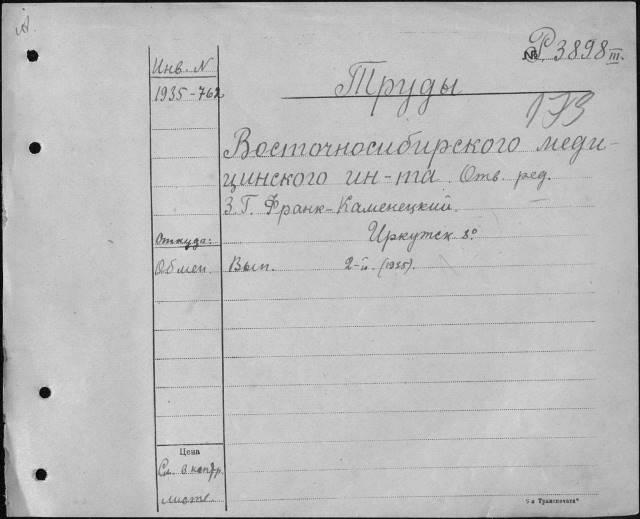 № Р 3898 III.
Инв. N
1935-762
Труды
173
Восточносибирского меди-
цинского ин-та Отв. ред.
З.Г. Франк-Каменецкий.
Иркутск 8°
Откуда:
Обмен.
Вып. 2-й. (1935).
Цена
См. в контр.
листе.
"Транспечать"